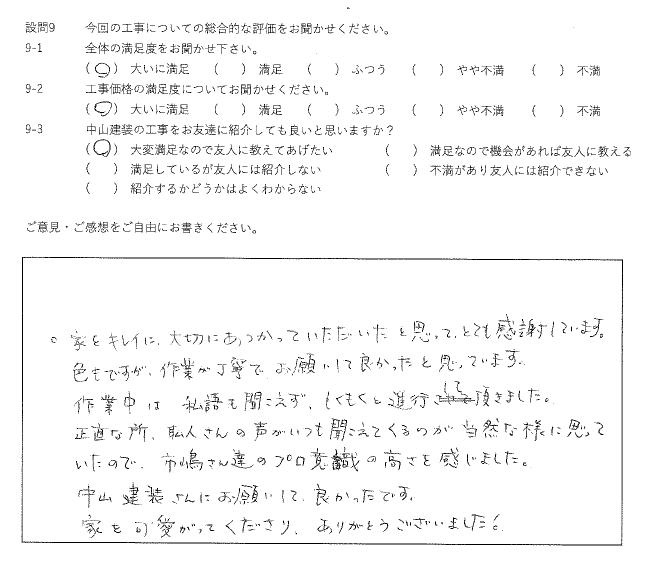 設問9 今回の工事についての総合的な評価をお聞かせください。
9-1 全体の満足度をお聞かせ下さい。
(○) 大いに満足 ( ) 満足 ( ) ふつう ( ) やや不満 ( ) 不満
9-2 工事価格の満足度についてお聞かせください。
(○) 大いに満足 ( ) 満足 ( ) ふつう ( ) やや不満 ( ) 不満
9-3 中山建装の工事をお友達に紹介しても良いと思いますか？
(○) 大変満足なので友人に教えてあげたい ( ) 満足なので機会があれば友人に教える
( ) 満足しているが友人には紹介しない ( ) 不満があり友人には紹介できない
( ) 紹介するかどうかはよくわからない
ご意見・ご感想をご自由にお書きください。
○ 家をキレイに、大切にあつかっていただいたと思って、とても感謝しています。
色もですが、作業が丁寧で、お願いして良かったと思っています。
作業中は 私語も聞こえず、もくもくと進行して頂きました。
正直な所、職人さんの声がいつも聞こえてくるのが当然な様に思って
いたので、市嶋さん達のプロ意識の高さを感じました。
中山建装さんにお願いして、良かったです。
家を可愛がってくださり、ありがとうございました！